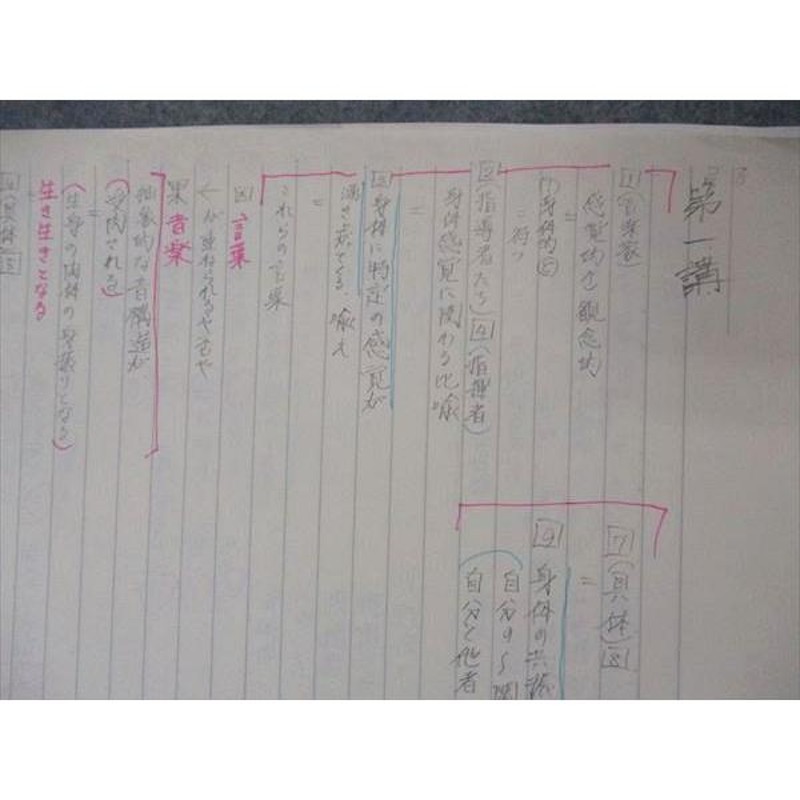 第一講
1(音楽家)
感覚的な観念的
=
(身体的5)
=符つ
2(指導者たち)4(指揮者)
身体感覚に関わる比喩
=
3身体に特定の感覚が
湧き出てくる、喩え
=
これらの言葉
図言葉
←が重ねられるやいなや
果音楽
抽象的な音構造が
(受肉される)
=
(生身の肉体の
生き生きとなる
(具体)
7(具体)8
=
9身体の共振
自分の
自分と他者